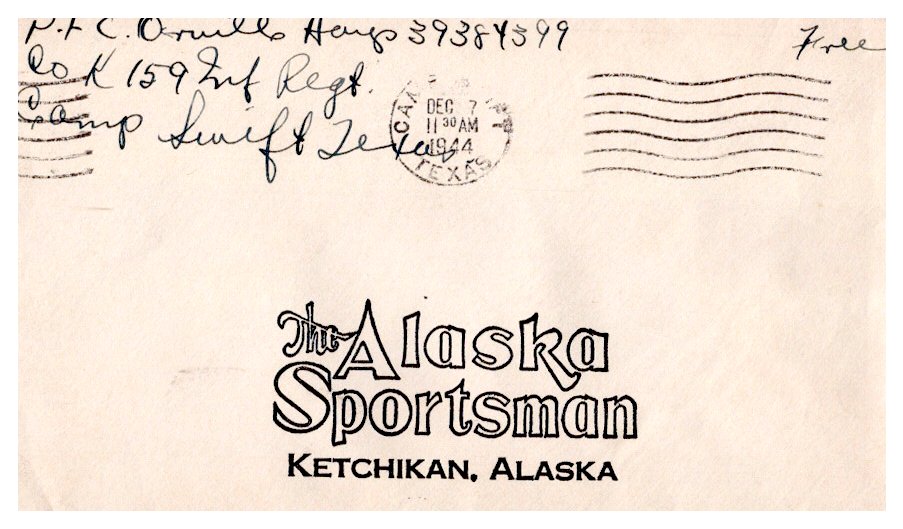 Pfc. Orville Hays 39384399
Free
Co K 159 Inf Regt.
Camp Swift Texas
CAMP
DEC 7
11 30 AM
1944
TEXAS
The Alaska
Sportsman
KETCHIKAN, ALASKA